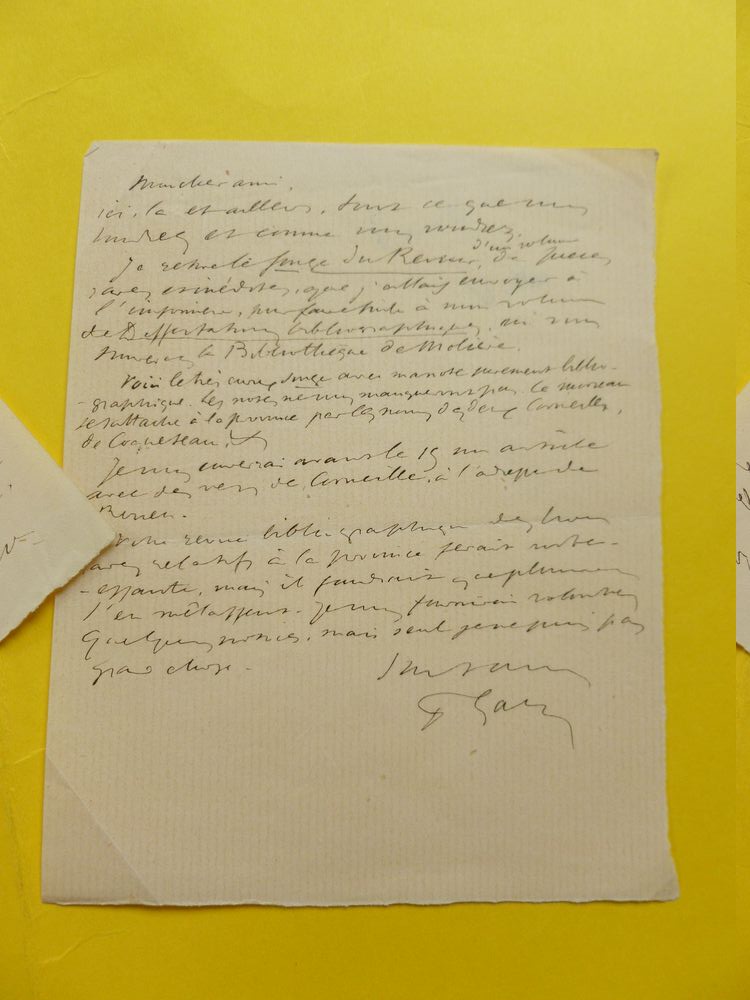 Mon cher ami,
ici, là et ailleurs, tout ce que vous
voudrez et comme vous voudrez.
d'un volume
Je retire le Songe du Resveur, de pièces
rares et inédites, que j'allais envoyer à
l'imprimeur, pour faire suite à mon volume
de Dissertations bibliographiques, où vous
trouverez la Bibliothèque de Molière.
Voici le très curieux Songe avec ma note purement biblio-
-graphique. Les notes ne vous manqueront pas. Ce morceau
se rattache à la province par les noms des deux Corneilles,
de Coqueteau,
Je vous enverrai avant le 15 un article
avec des vers de Corneille, à l'adresse de
Rouen.
Votre revue bibliographique des livres
rares relatifs à la province serait inté-
-ressante, mais il faudrait que plusieurs
s'en mêlassent. Je vous fournirai volontiers
quelques notices, mais seul je ne puis pas
grand chose.